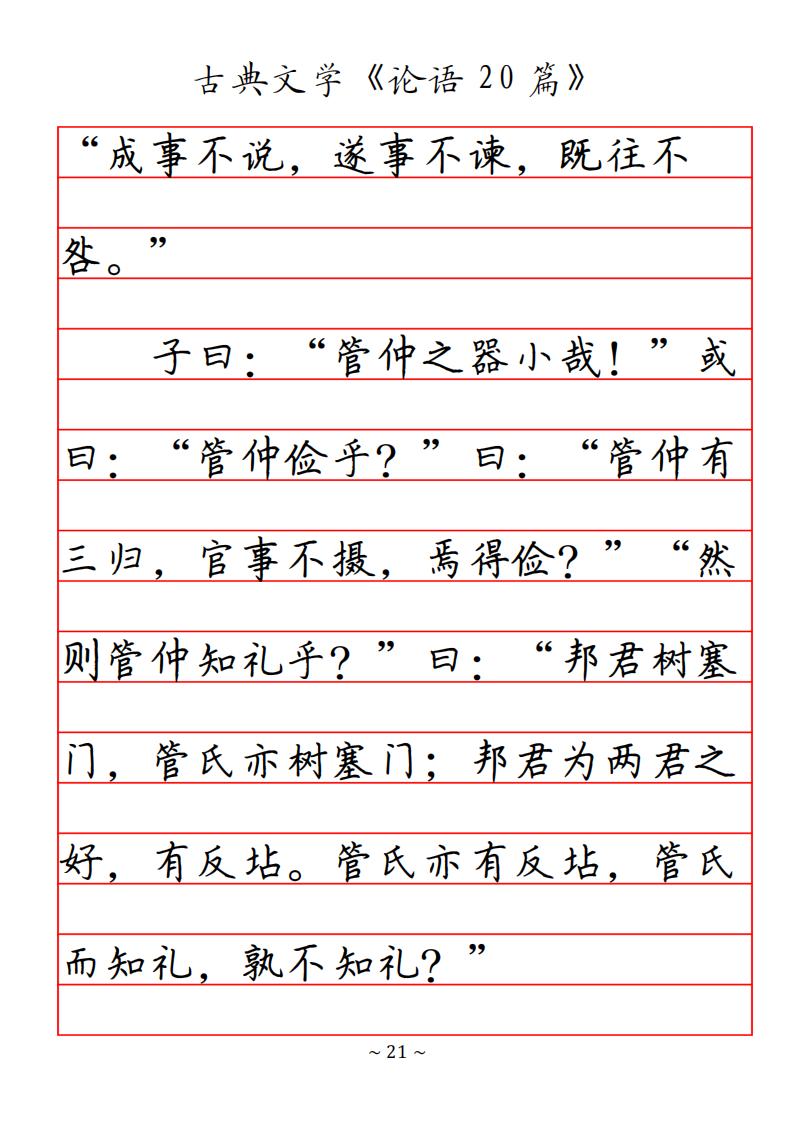 古典文学《论语 20 篇》
“成事不说，遂事不谏，既往不
咎。”
子曰：“管仲之器小哉！”或
曰：“管仲俭乎？”曰：“管仲有
三归，官事不摄，焉得俭？”“然
则管仲知礼乎？”曰：“邦君树塞
门，管氏亦树塞门；邦君为两君之
好，有反坫。管氏亦有反坫，管氏
而知礼，孰不知礼？”
~ 21 ~